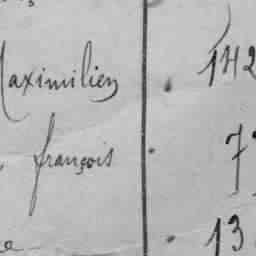 Maximilien 142
françois 7
13